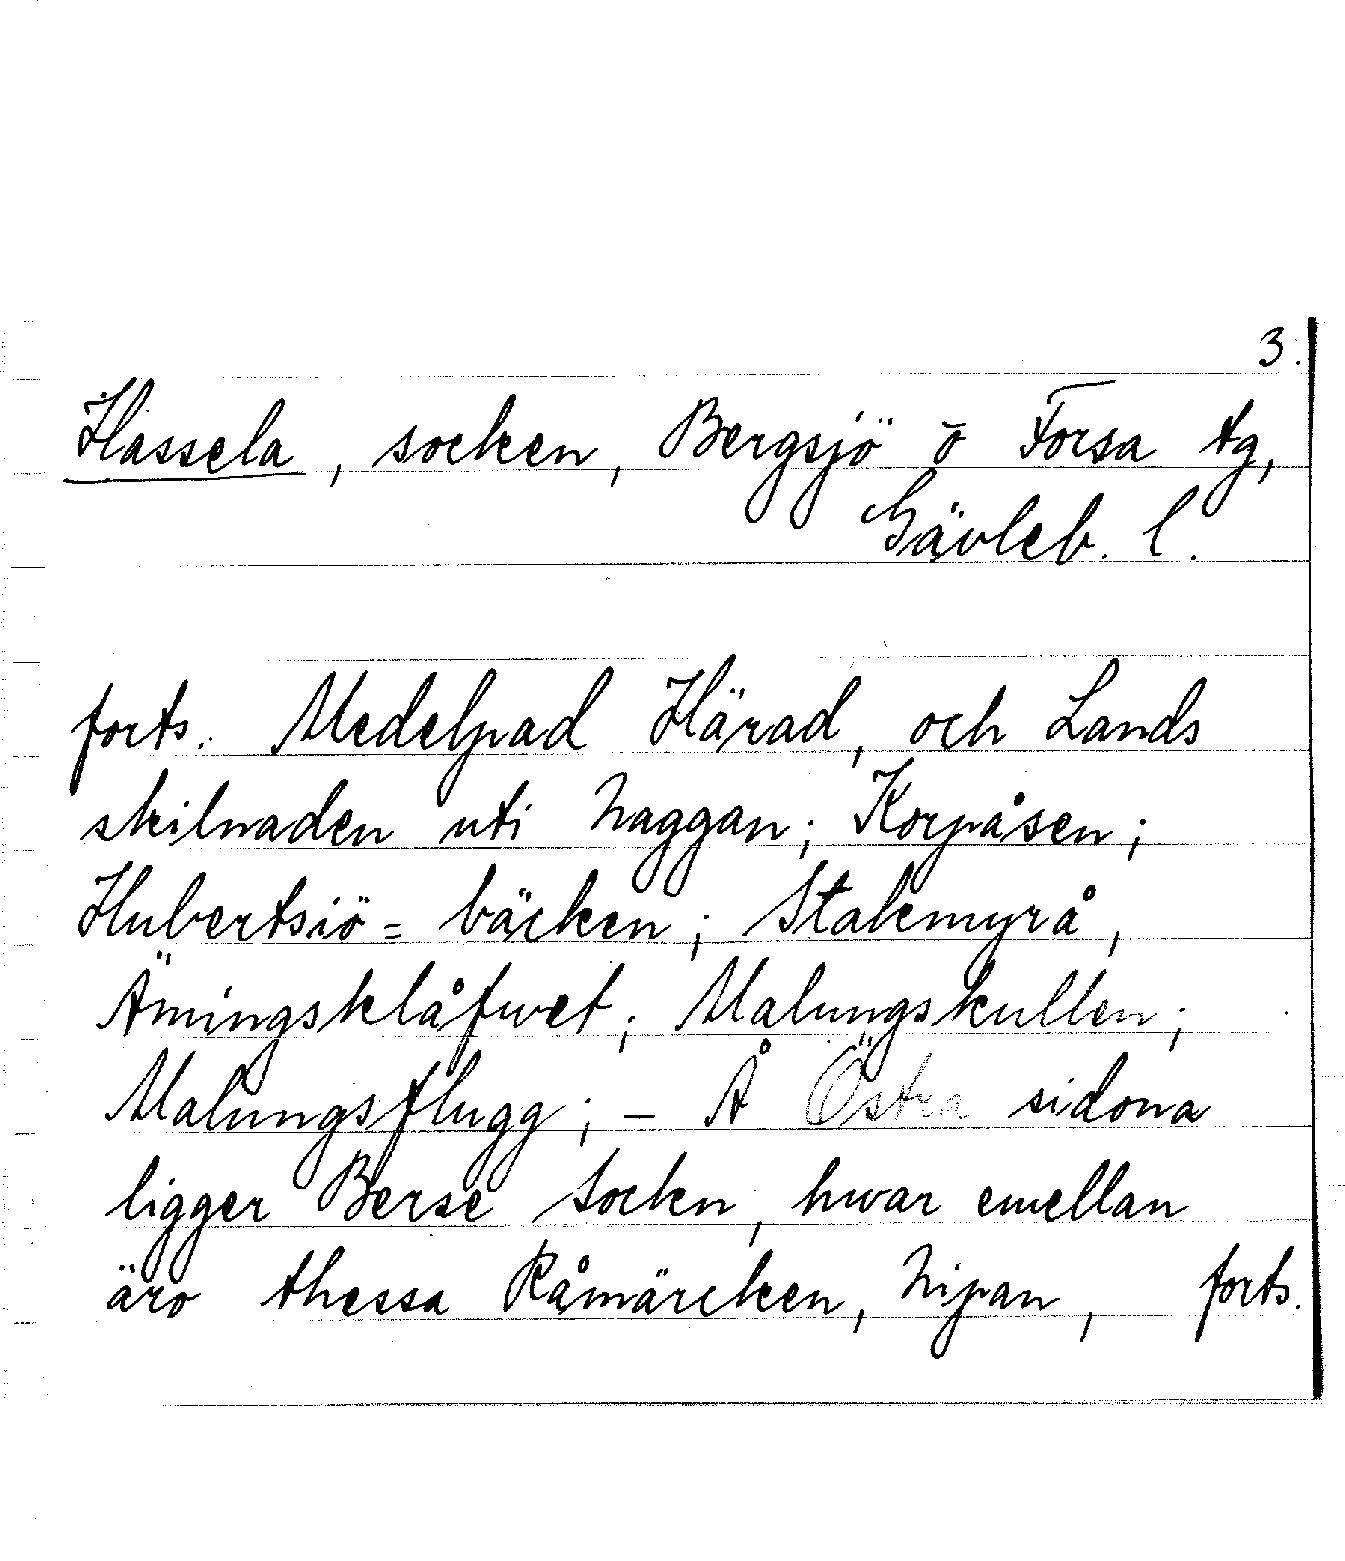 3.
Hassela, socken, Bergsjö o Forsa tg,
Gävleb. l.
forts. Medelpad Härad, och Lands
skilnaden uti Naggan; Korpåsen;
Hubertsiö= bäcken; Stakemyrå,
Ämingsklåfwet; Malungskullen;
Malungsflugg; – Å Östra sidona
ligger Berse Sockn, hwar emellan
äro thessa Råmärcken, Nipan, forts.